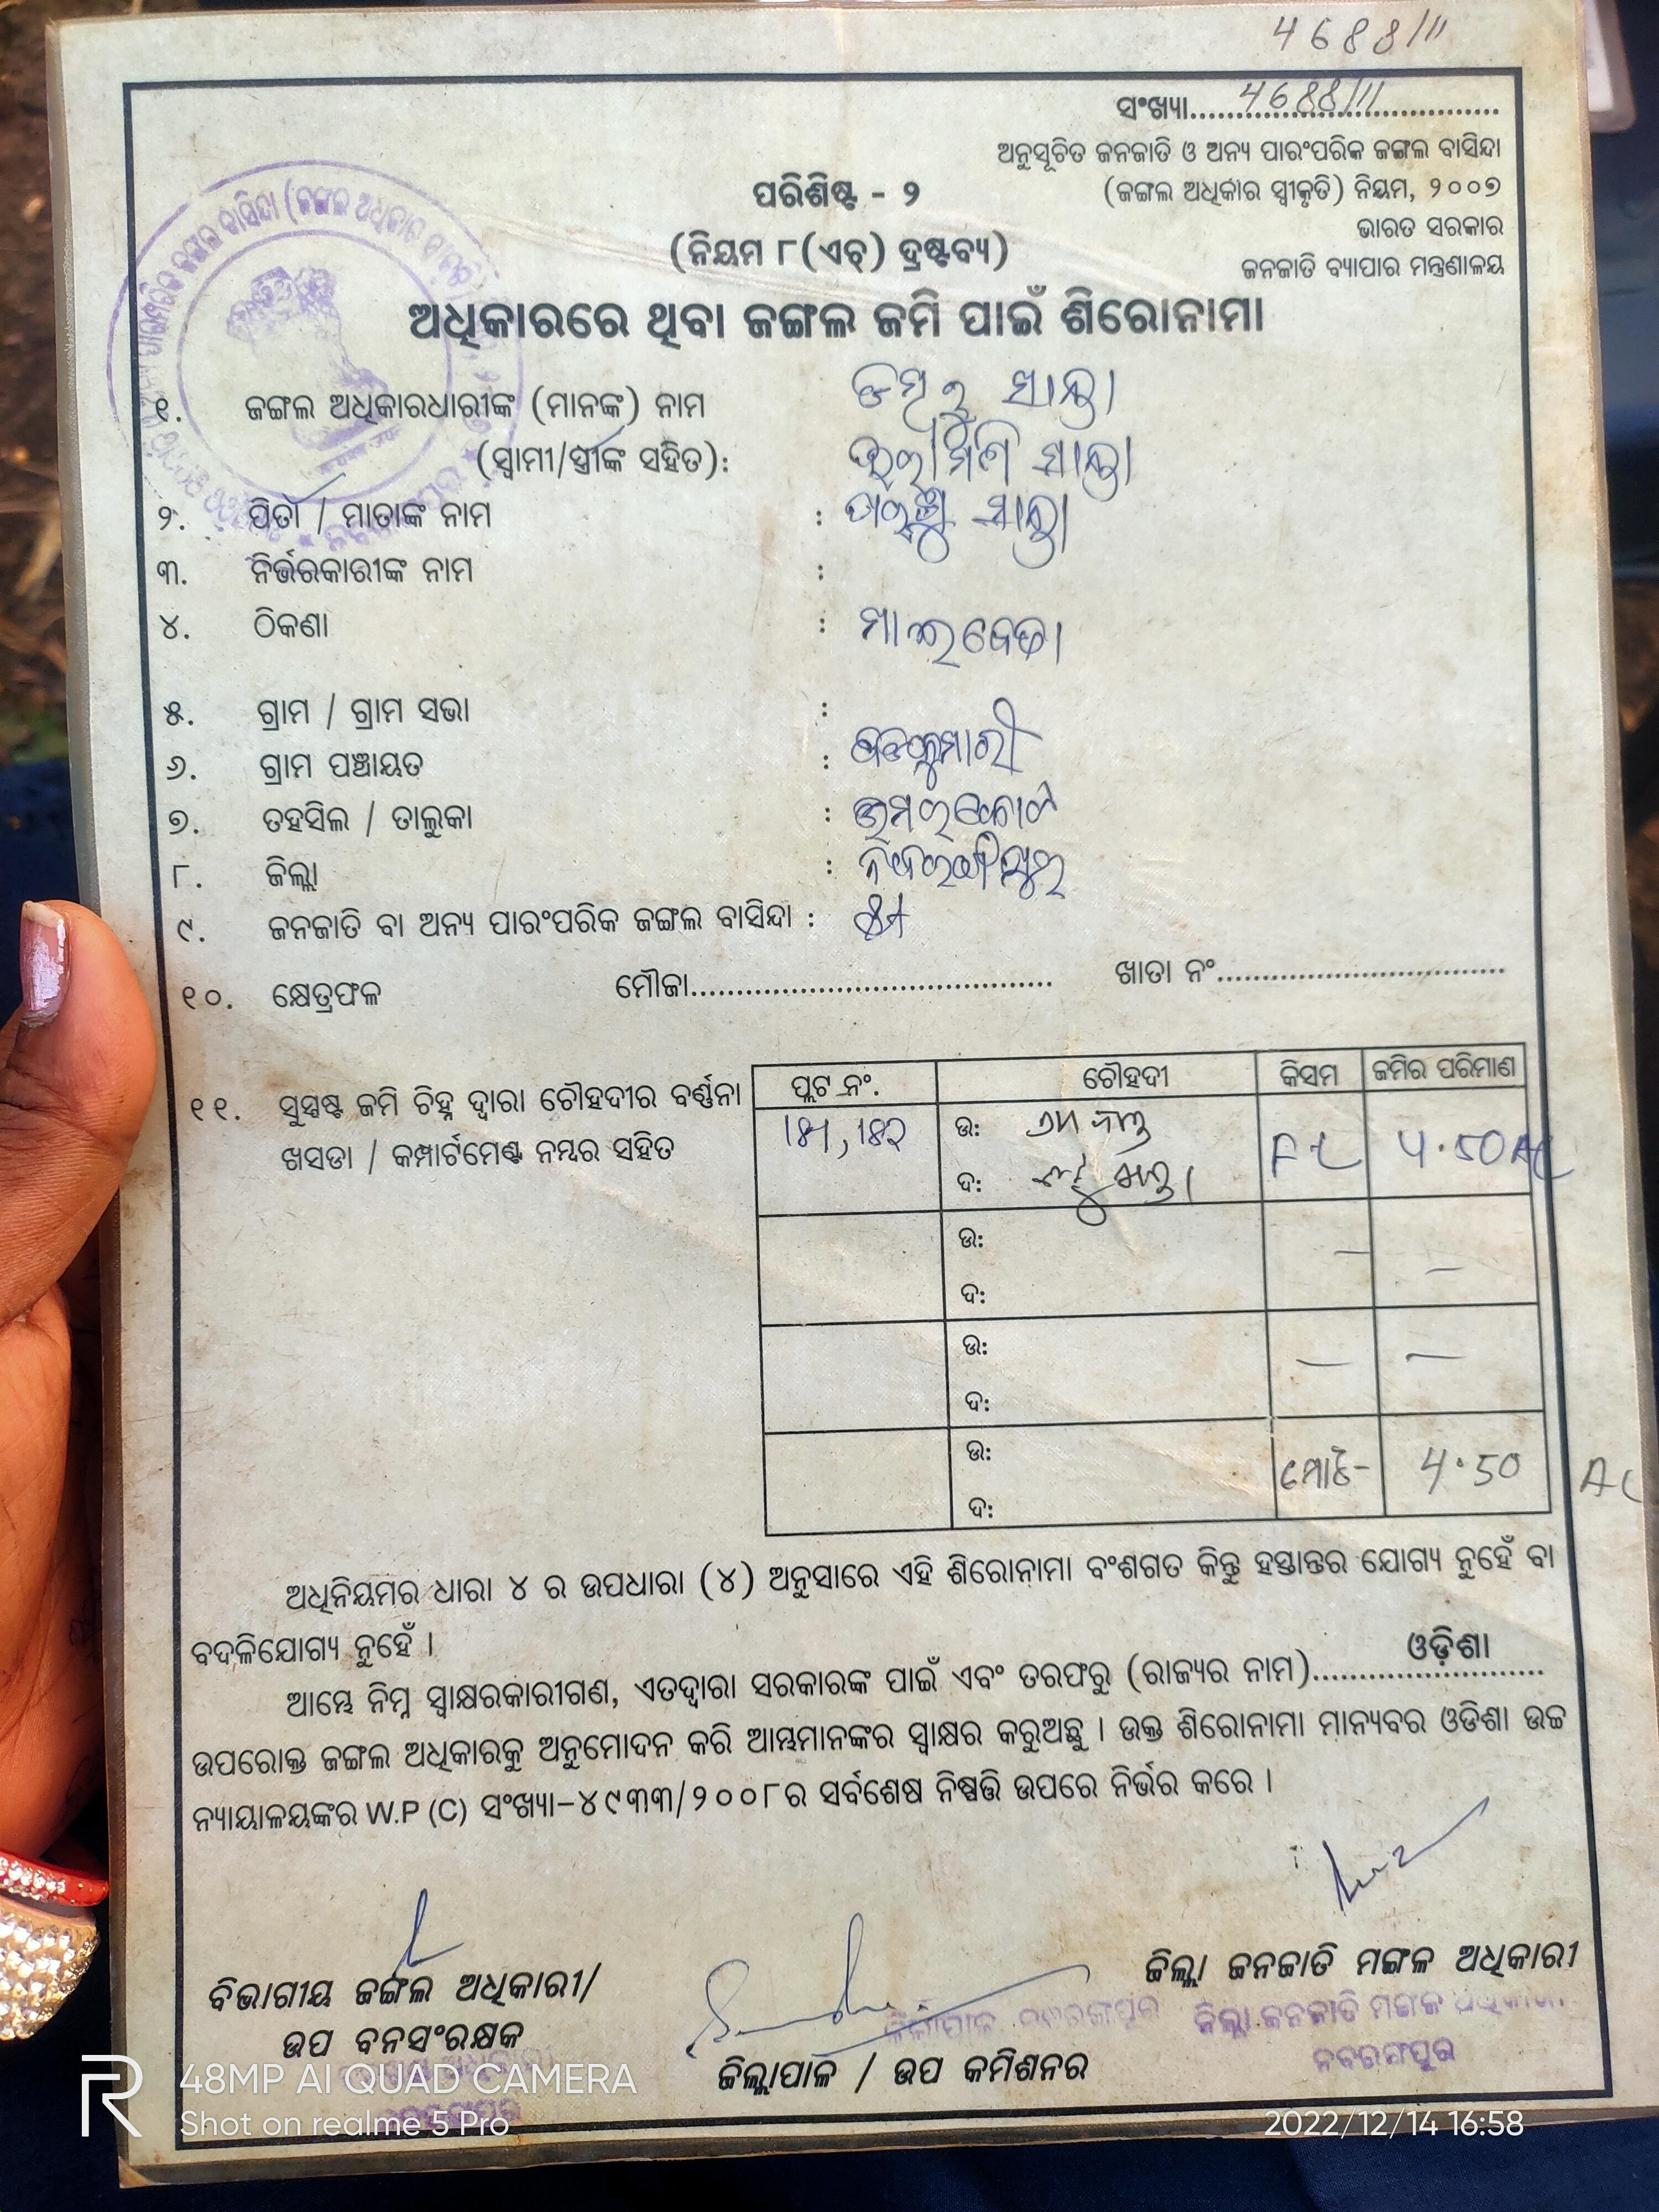 4688/11
ସଂଖ୍ୟା....4688/11....
ଅନୁସୂଚିତ ଜନଜାତି ଓ ଅନ୍ୟ ପାରଂପରିକ ଜଙ୍ଗଲ ବାସିନ୍ଦା
(ଜଙ୍ଗଲ ଅଧିକାର ସ୍ୱୀକୃତି) ନିୟମ, ୨୦୦୭
ଭାରତ ସରକାର
ଜନଜାତି ବ୍ୟାପାର ମନ୍ତ୍ରଣାଳୟ
ପରିଶିଷ୍ଟ - ୨
(ନିୟମ ୮(ଏଚ୍) ଦ୍ରଷ୍ଟବ୍ୟ)
ଅଧିକାରରେ ଥିବା ଜଙ୍ଗଲ ଜମି ପାଇଁ ଶିରୋନାମା
୧. ଜଙ୍ଗଲ ଅଧିକାରଧାରୀଙ୍କ (ମାନଙ୍କ) ନାମ
(ସ୍ୱାମୀ/ସ୍ତ୍ରୀଙ୍କ ସହିତ):
୨. ପିତା / ମାତାଙ୍କ ନାମ :
୩. ନିର୍ଭରକାରୀଙ୍କ ନାମ :
୪. ଠିକଣା :
୫. ଗ୍ରାମ / ଗ୍ରାମ ସଭା :
୬. ଗ୍ରାମ ପଞ୍ଚାୟତ : ବଡକୁମାରୀ
୭. ତହସିଲ / ତାଲୁକା : ଉମରକୋଟ
୮. ଜିଲ୍ଲା : ନବରଙ୍ଗପୁର
୯. ଜନଜାତି ବା ଅନ୍ୟ ପାରଂପରିକ ଜଙ୍ଗଲ ବାସିନ୍ଦା :
୧୦. କ୍ଷେତ୍ରଫଳ ମୌଜା........ ଖାତା ନଂ........
୧୧. ସୁସ୍ପଷ୍ଟ ଜମି ଚିହ୍ନ ଦ୍ୱାରା ଚୌହଦୀର ବର୍ଣ୍ଣନା
ଖସଡା / କମ୍ପାର୍ଟମେଣ୍ଟ ନମ୍ବର ସହିତ
ପ୍ଲଟ ନଂ. ଚୌହଦୀ କିସମ ଜମିର ପରିମାଣ
ଉ: 4.50 AC
ଦ:
ଉ:
ଦ:
ଉ:
ଦ:
ଉ: ମୋଟ- 4.50 AC
ଦ:
ଅଧିନିୟମର ଧାରା ୪ ର ଉପଧାରା (୪) ଅନୁସାରେ ଏହି ଶିରୋନାମା ବଂଶଗତ କିନ୍ତୁ ହସ୍ତାନ୍ତର ଯୋଗ୍ୟ ନୁହେଁ ବା
ବଦଳିଯୋଗ୍ୟ ନୁହେଁ ।
ଆମ୍ଭେ ନିମ୍ନ ସ୍ୱାକ୍ଷରକାରୀଗଣ, ଏତଦ୍ୱାରା ସରକାରଙ୍କ ପାଇଁ ଏବଂ ତରଫରୁ (ରାଜ୍ୟର ନାମ)....ଓଡ଼ିଶା....
ଉପରୋକ୍ତ ଜଙ୍ଗଲ ଅଧିକାରକୁ ଅନୁମୋଦନ କରି ଆମ୍ଭମାନଙ୍କର ସ୍ୱାକ୍ଷର କରୁଅଛୁ । ଉକ୍ତ ଶିରୋନାମା ମାନ୍ୟବର ଓଡିଶା ଉଚ୍ଚ
ନ୍ୟାୟାଳୟଙ୍କର W.P (C) ସଂଖ୍ୟା-୪୯୩୩/୨୦୦୮ର ସର୍ବଶେଷ ନିଷ୍ପତ୍ତି ଉପରେ ନିର୍ଭର କରେ ।
ବିଭାଗୀୟ ଜଙ୍ଗଲ ଅଧିକାରୀ/
ଉପ ବନସଂରକ୍ଷକ
ଜିଲ୍ଲାପାଳ / ଉପ କମିଶନର
ଜିଲ୍ଲା ଜନଜାତି ମଙ୍ଗଳ ଅଧିକାରୀ
ଜିଲ୍ଲାପାଳ ନବରଙ୍ଗପୁର
ଜିଲ୍ଲା ଜନଜାତି ମଙ୍ଗଳ ଅଧିକାରୀ
ନବରଙ୍ଗପୁର
R 48MP AI QUAD CAMERA
Shot on realme 5 Pro
2022/12/14 16:58